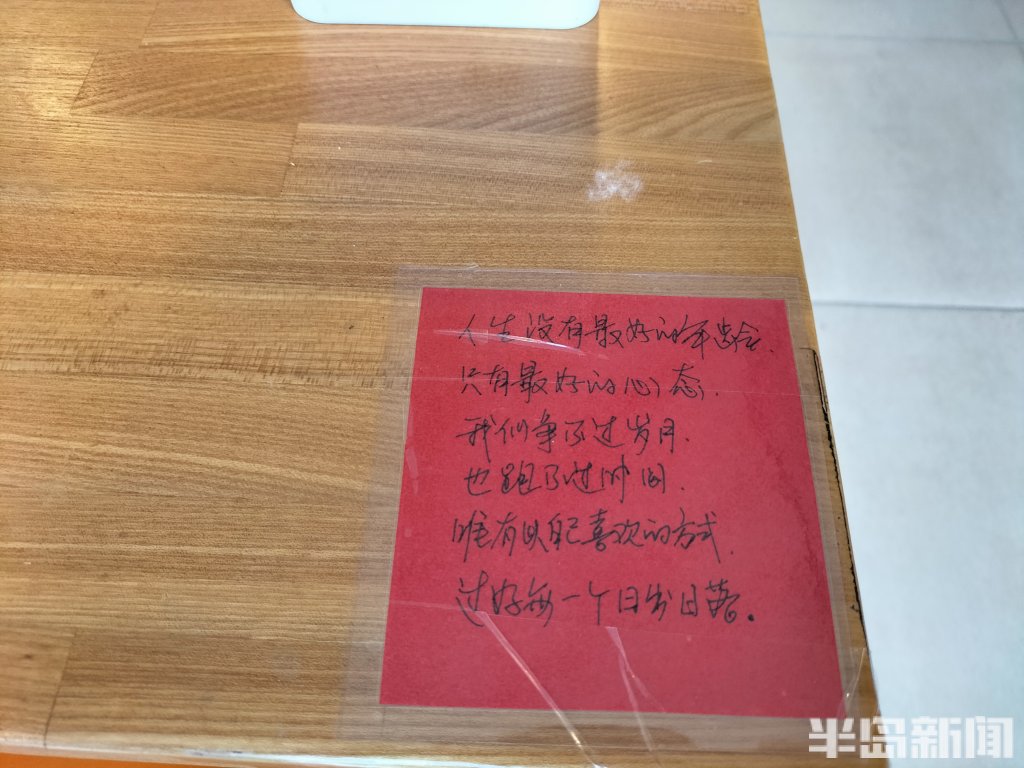 人生没有最好的年龄.
只有最好的心态.
我们争不过岁月.
也跑不过时间.
唯有以自己喜欢的方式.
过好每一个日出日落。
半岛新闻